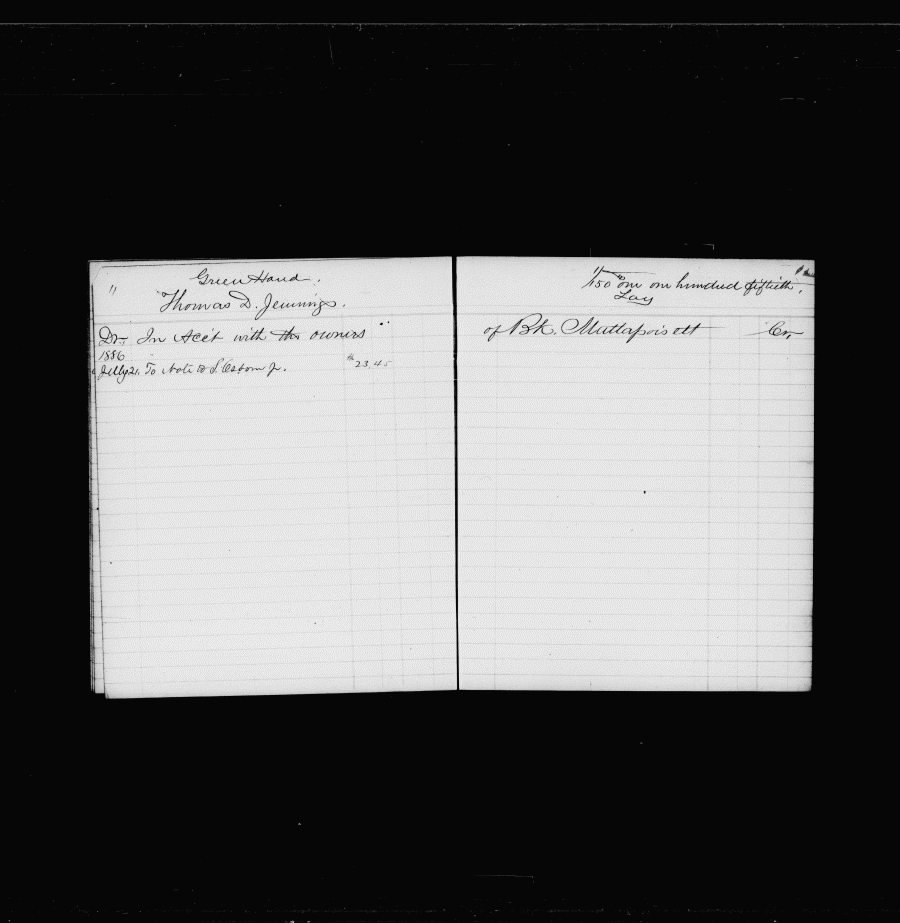 Green Hand.
"
Thomas D. Jennings.
Dr. In Acc't with the owners
1886
July 21. To Note to S. Osborn Jr. 23.45
1/150 one one hundred fiftieth.
Lay
of Bk. Mattapoisett Cr.